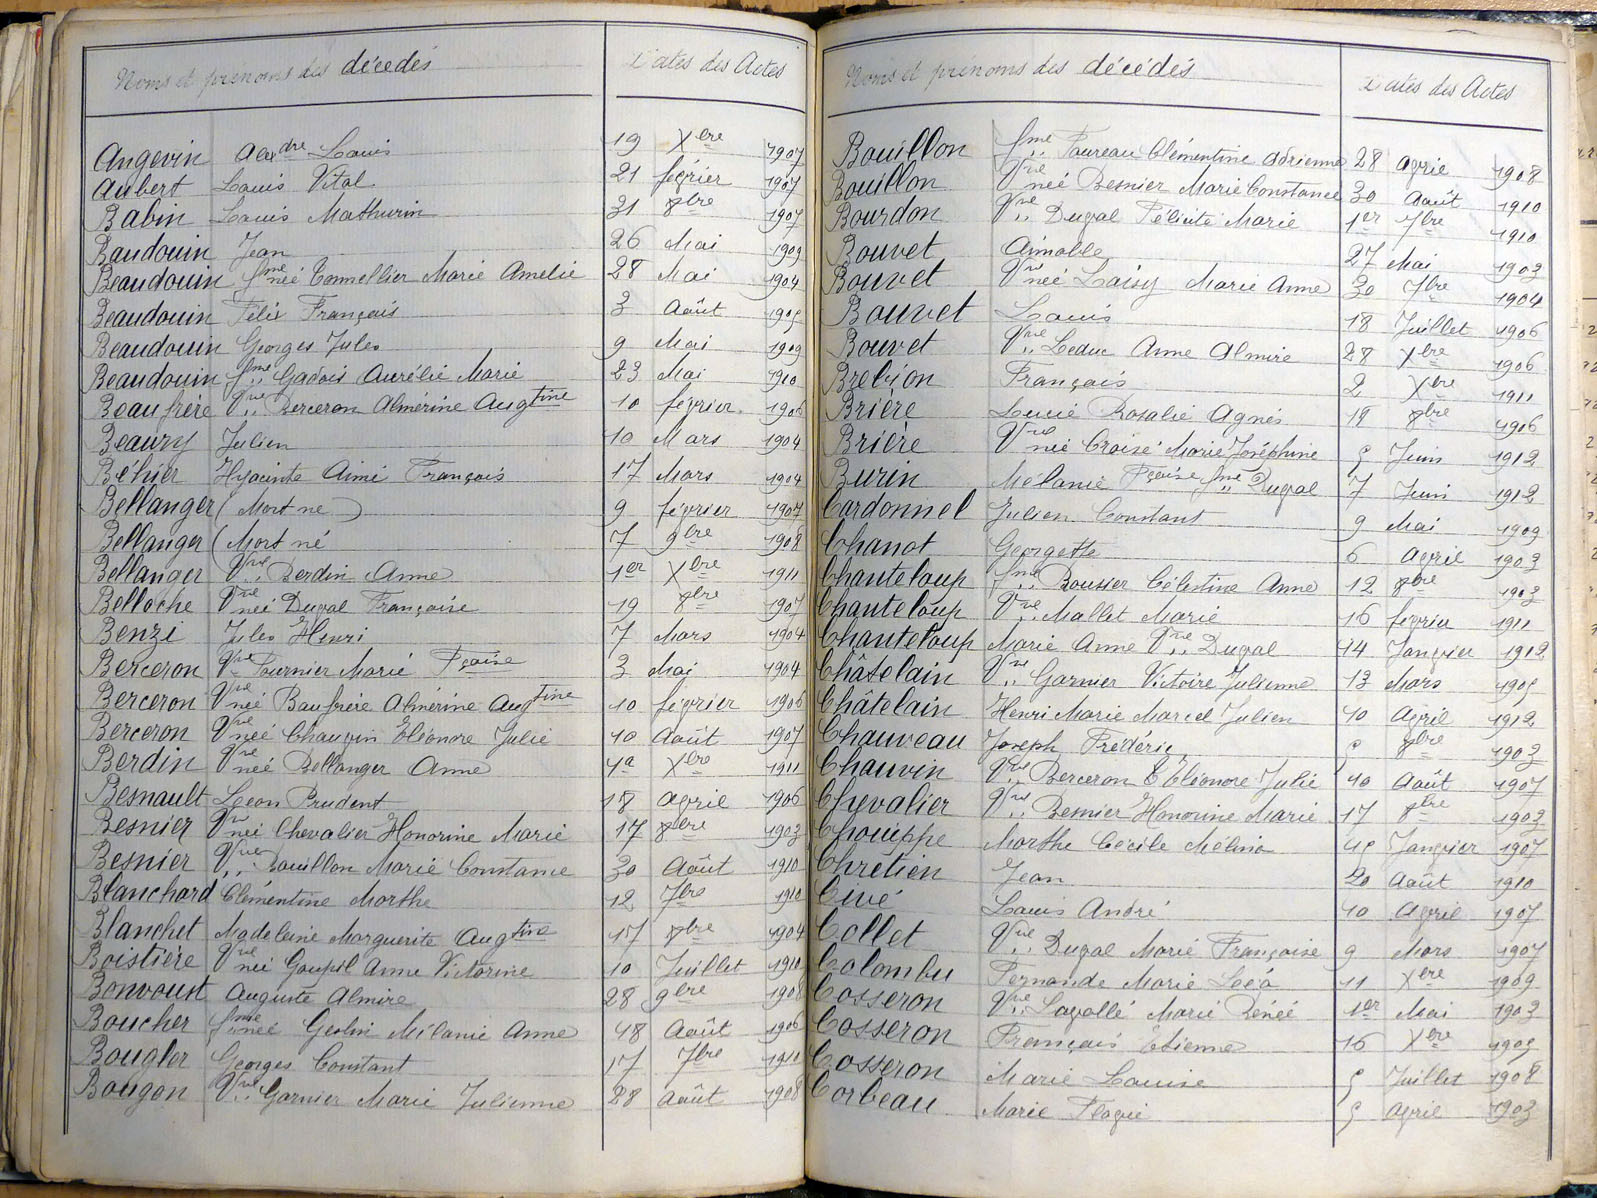 Noms et prénoms des décédés
Dates des Actes
Angevin Alexdre Louis 19 Xbre 1907
Aubert Louis Vital 21 février 1907
Babin Louis Mathurin 31 8bre 1907
Baudouin Jean 26 Mai 1909
Beaudouin fme née Tonnellier Marie Amélie 28 Mai 1904
Beaudouin Félix François 3 Août 1905
Beaudouin Georges Jules 9 Mai 1909
Beaudouin fme „ Gadois Aurélie Marie 23 Mai 1910
Beaufrère Vve „ Berceron Almérine Augtine 10 février 1906
Beaury Julien 10 Mars 1904
Béhier Hyacinte Aimé François 17 Mars 1904
Bellanger (Mort né) 9 février 1907
Bellanger (Mort né 7 9bre 1908
Bellanger Vve „ Berdin Anne 1er Xbre 1911
Belloche Vve née Duval Françoise 19 8bre 1907
Benzi Jules Henri 7 Mars 1904
Berceron Vve Fournier Marie Fçoise 3 Mai 1904
Berceron Vve née Baufrère Almérine Augtine 10 février 1906
Berceron Vve née Chauvin Eléonore Julie 10 Août 1907
Berdin Vve née Bellanger Anne Xbre 1911
Besnault Leon Prudent 18 avril 1906
Besnier Vve née Chevalier Honorine Marie 17 8bre 1903
Besnier Vve „ Bouillon Marie Constance 30 Août 1910
Blanchard Clémentine Marthe 12 7bre 1910
Blanchet Madeleine Marguerite Augtine 17 8bre 1904
Boistière Vve née Goupil Anne Victorine 10 Juillet 1910
Bonvoust Auguste Almire 28 9bre 1908
Boucher fme née Geslin Mélanie Anne 18 Août 1906
Bougler Georges Constant 17 7bre 1910
Bougon Vve „ Garnier Marie Julienne 28 Août 1908
Noms et prénoms des décédés
Dates des Actes
Bouillon fme „ Foureau Clémentine Adrienne 28 avril 1908
Bouillon Vve née Besnier Marie Constance 30 Août 1910
Bourdon Vve „ Duval Félicité Marie 1er 7bre 1910
Bouvet Aimable 27 Mai 1903
Bouvet Vve née Loisy Marie Anne 30 7bre 1904
Bouvet Louis 18 Juillet 1906
Bouvet Vve „ Leduc Anne Almire 28 Xbre 1906
Breljon François 2 Xbre 1911
Brière Lucie Rosalie Agnès 19 8bre 1906
Brière Vve née Croisé Marie Joséphine 5 Juin 1912
Burin Mélanie Fçoise fme „ Duval 7 Juin 1912
Cardonnel Julien Constant 9 Mai 1909
Chanot Georgette 6 avril 1903
Chanteloup fme „ Rousier Célestine Anne 12 8bre 1903
Chanteloup Vve „ Mallet Marie 16 février 1911
Chanteloup Marie Anne Vve „ Duval 14 Janvier 1912
Châtelain Vve „ Garnier Victoire Julienne 13 Mars 1905
Châtelain Henri Marie Marcel Julien 10 avril 1912
Chauveau Joseph Frédéric 5 8bre 1903
Chauvin Vve „ Berceron Eléonore Julie 10 Août 1907
Chevalier Vve „ Besnier Honorine Marie 17 8bre 1903
Chouippe Marthe Cécile Mélina 15 Janvier 1907
Chrétien Jean 20 Août 1910
Civé Louis André 10 avril 1907
Collet Vve „ Duval Marie Françoise 9 Mars 1907
Colombu Fernande Marie Léa 11 Xbre 1909
Cosseron Vve „ Lavallé Marie Rénée 1er Mai 1903
Cosseron François Etienne 16 Xbre 1905
Cosseron Marie Louise 5 Juillet 1908
Corbeau Marie Flavie 5 avril 1903